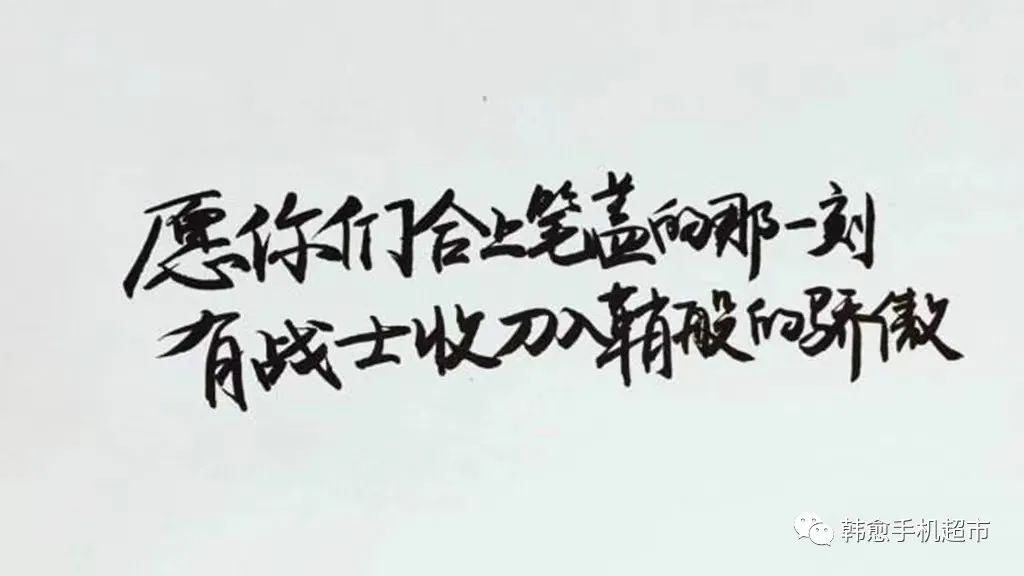 愿你们合上笔盖的那一刻
有战士收刀入鞘般的骄傲
韩愈手机超市